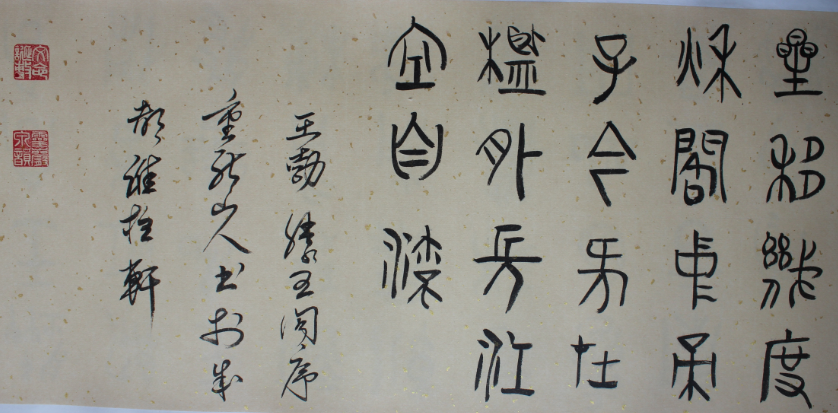 星移幾度
秋閣中帝
子今何在
檻外長江
空自流
王勃滕王閣序
重龍山人書於成
都桂軒